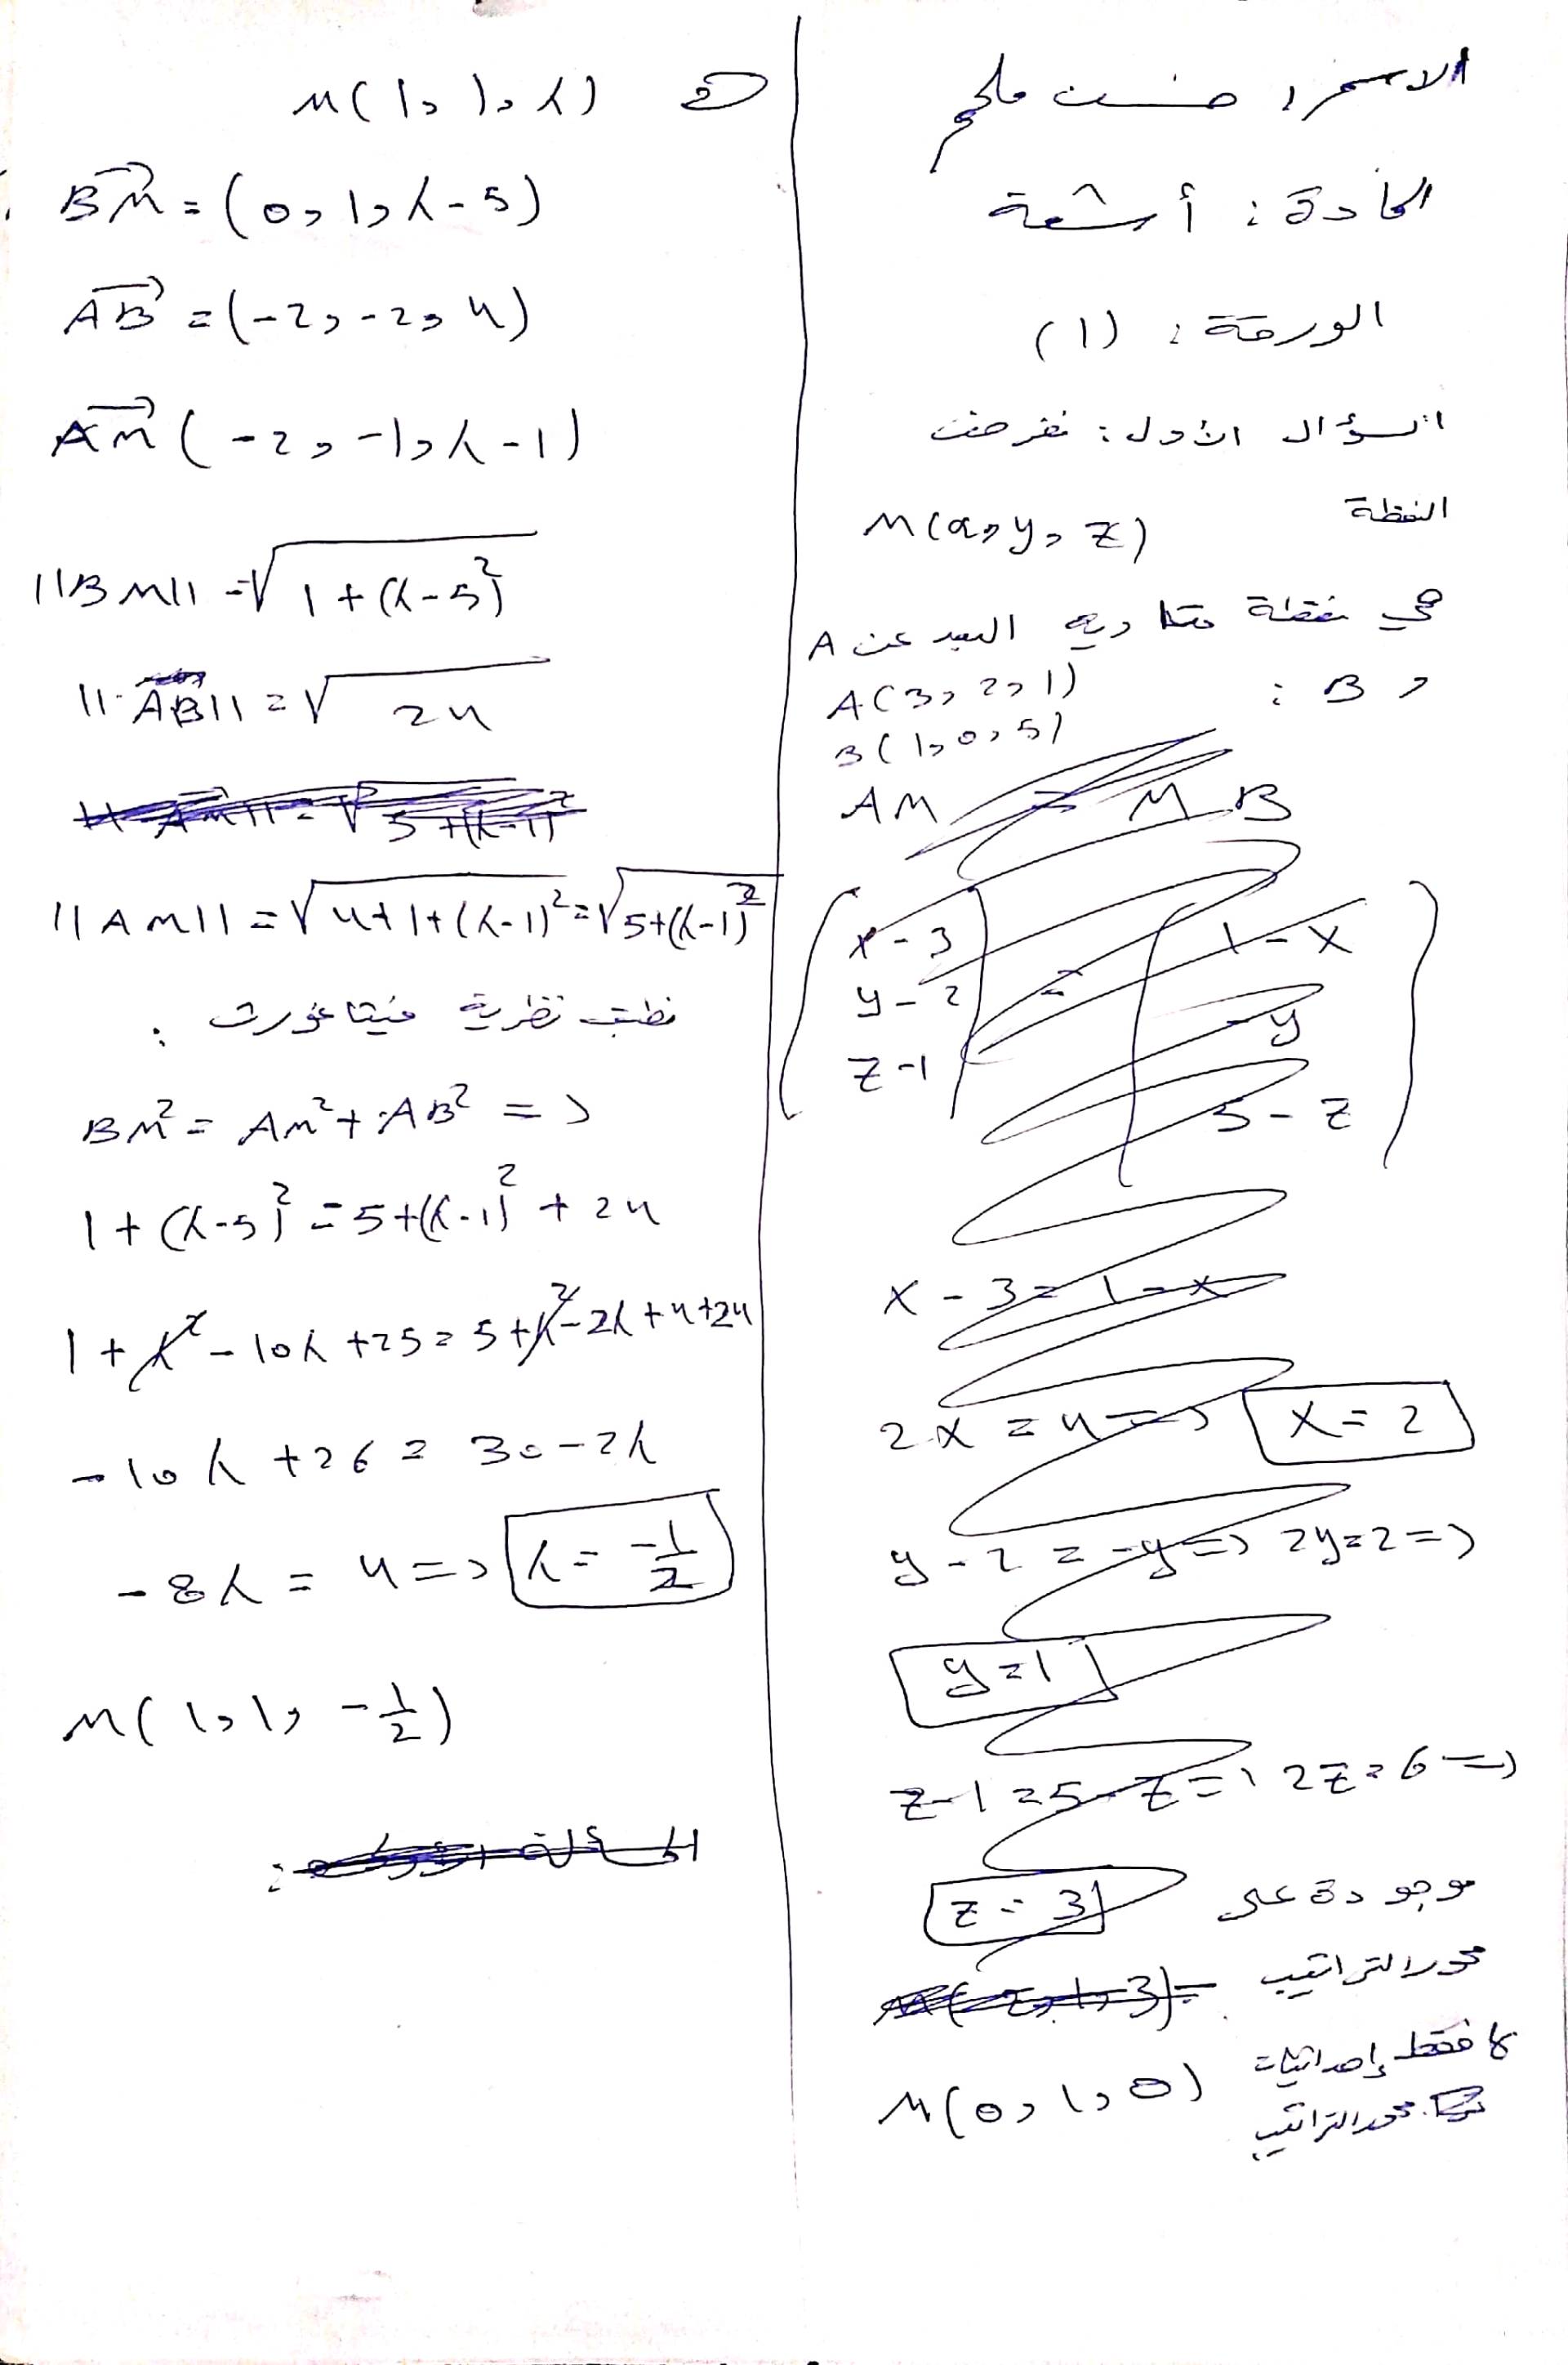 الاسم: حسن ملحم
المادة: أشعة
الورقة: (1)
السؤال الأول: نفرض
النقطة
M(x, y, z)
هي نقطة متساوية البعد عن A
و B:
A(3, 2, 1)
B(1, 0, 5)
AM = MB
x - 3 = 1 - x
y - 2 = -y
z - 1 = 5 - z
x - 3 = 1 - x
2x = 4 => x = 2
y - 2 = -y => 2y = 2 =>
y = 1
z - 1 = 5 - z => 2z = 6 =>
z = 3
موجودة على
محور التراتيب
فقط إحداثيات
محور التراتيب
M(0, 1, 0)
M(1, 1, λ)
BM = (0, 1, λ - 5)
AB = (-2, -2, 4)
AM (-2, -1, λ - 1)
||BM|| = √1 + (λ - 5)²
||AB|| = √24
||AM|| = √4 + 1 + (λ - 1)² = √5 + (λ - 1)²
نطبق نظرية فيثاغورث:
BM² = AM² + AB² =>
1 + (λ - 5)² = 5 + (λ - 1)² + 24
1 + λ² - 10λ + 25 = 5 + λ² - 2λ + 4 + 24
-10λ + 26 = 30 - 2λ
-8λ = 4 => λ = -1/2
M(1, 1, -1/2)